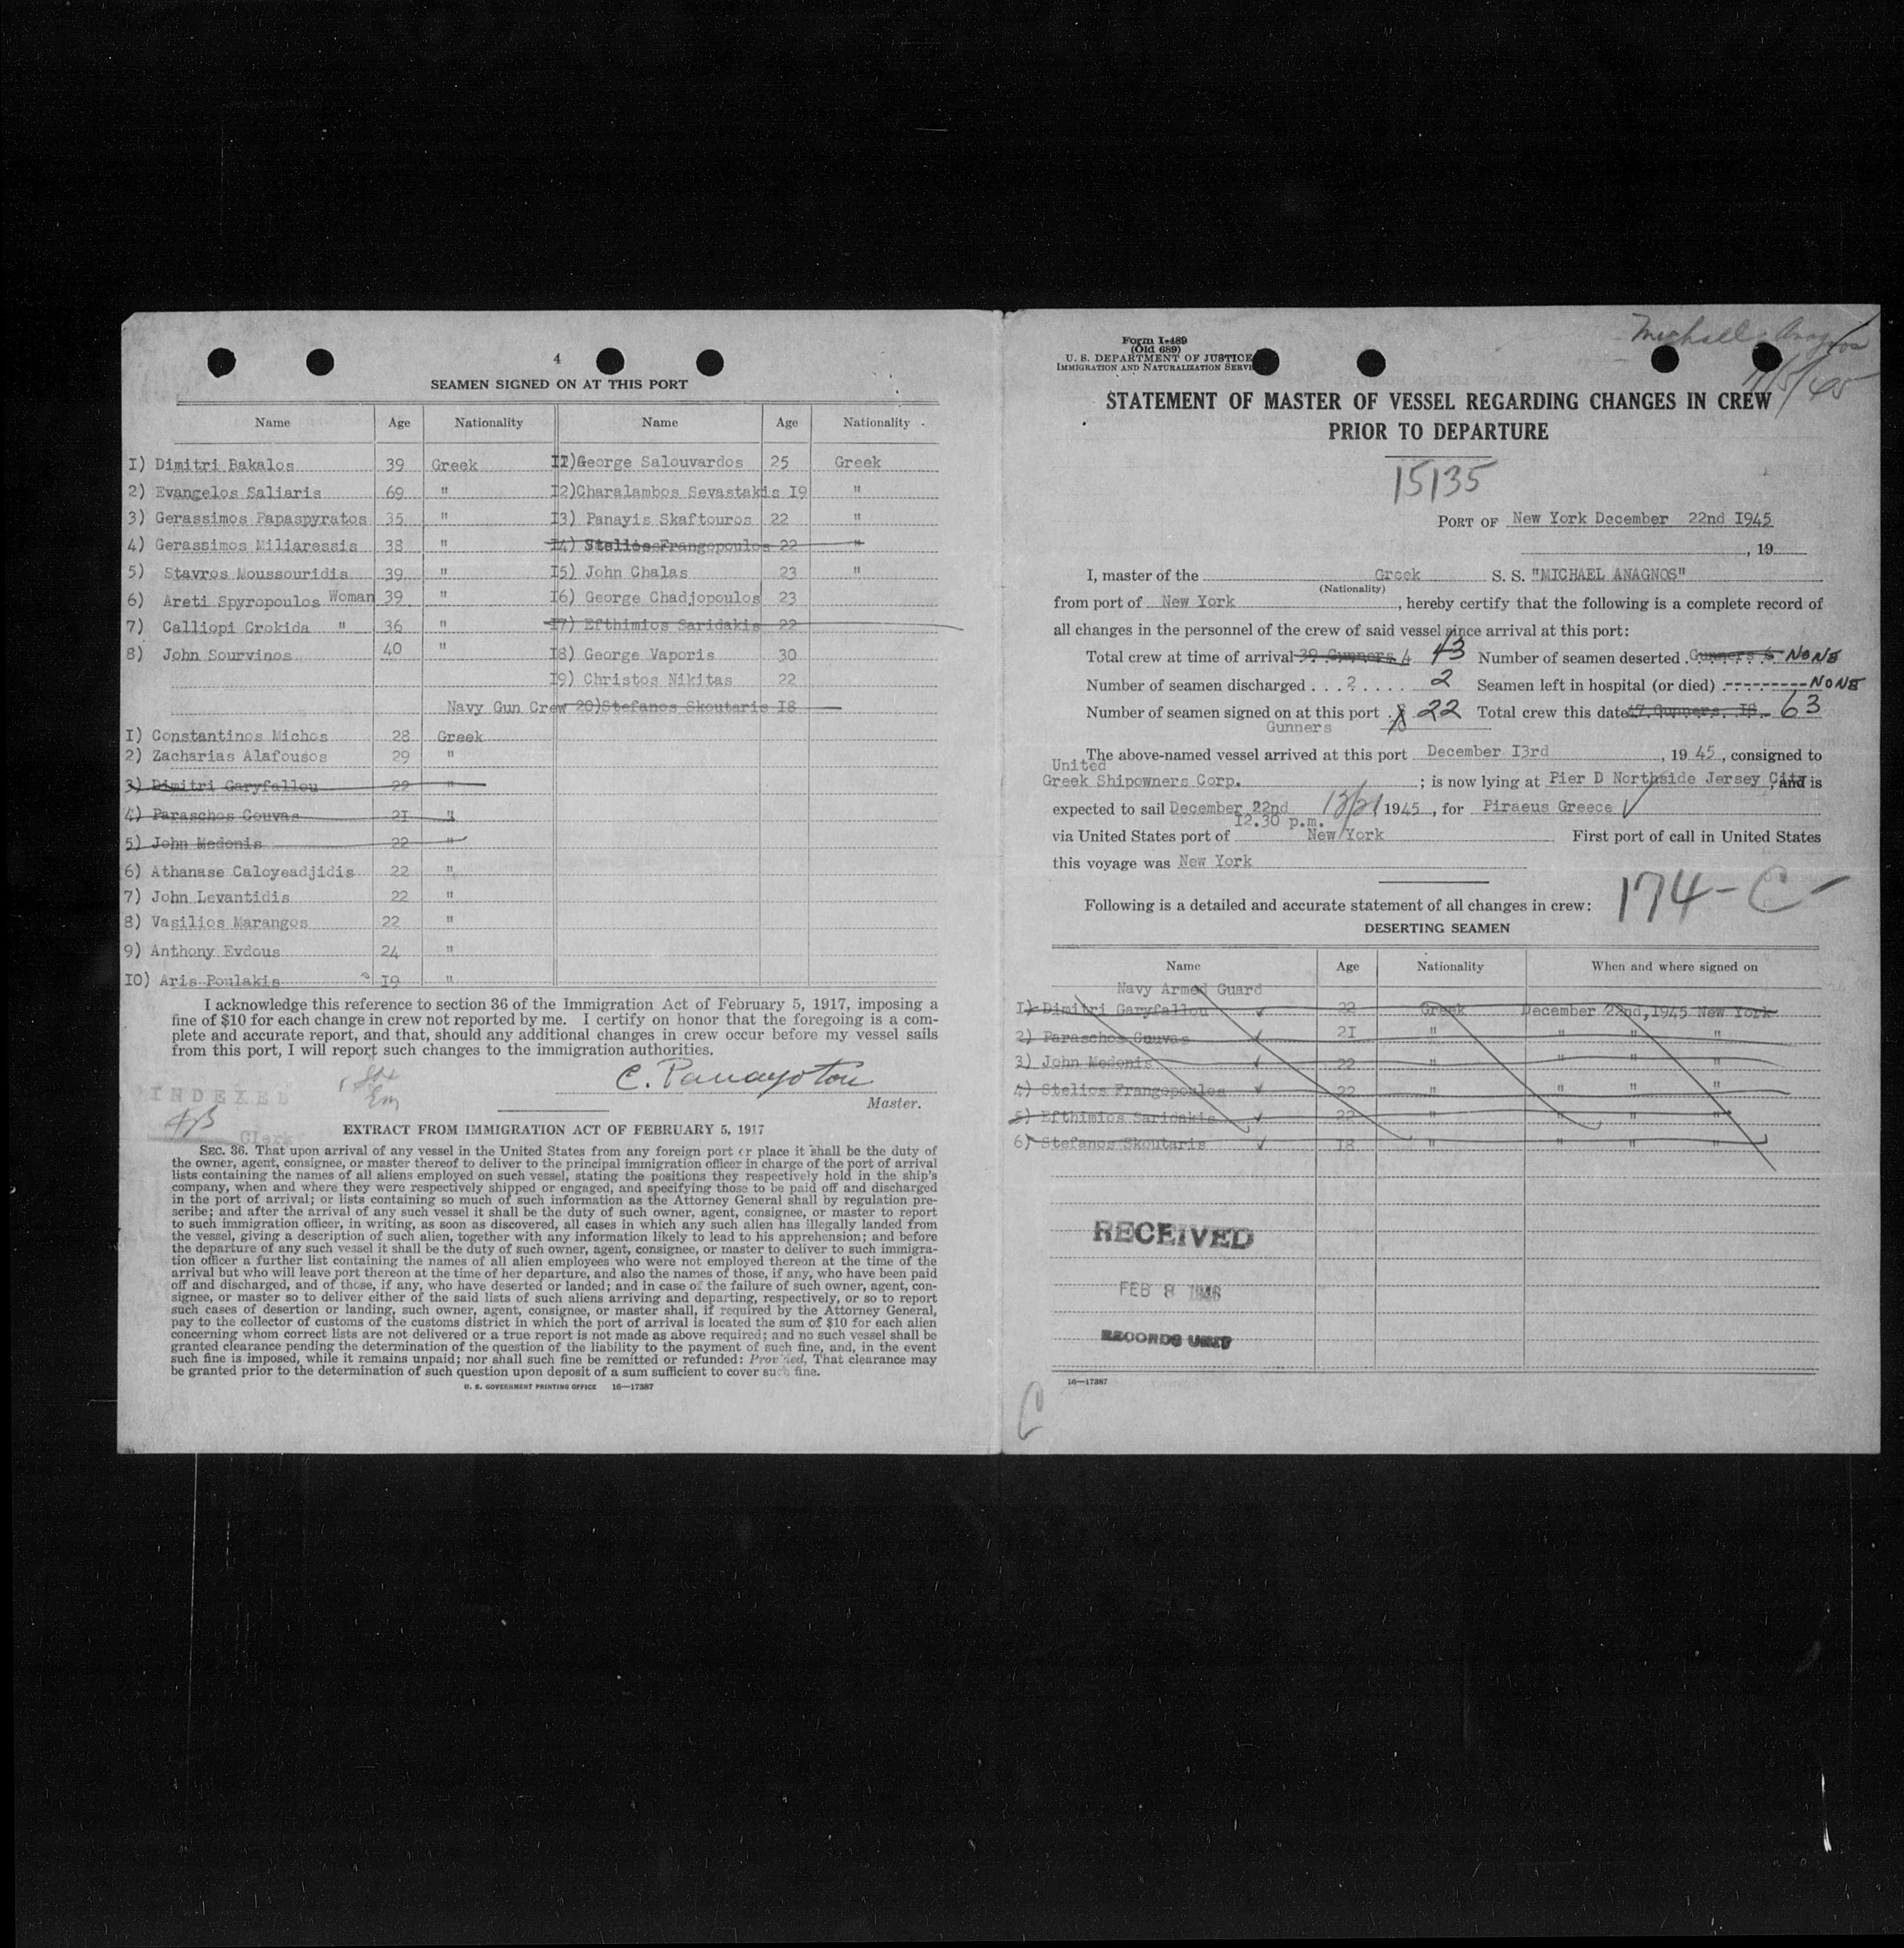 4
SEAMEN SIGNED ON AT THIS PORT
Name Age Nationality Name Age Nationality
1) Dimitri Bakalos 39 Greek 11) George Salouvardos 25 Greek
2) Evangelos Saliaris 69 " 12) Charalambos Sevastakis 19 "
3) Gerassimos Papaspyratos 35 " 13) Panayis Skaftouros 22 "
4) Gerassimos Miliaressis 38 " 14) Stelios Frangopoulos 22 "
5) Stavros Moussouridis 39 " 15) John Chalas 23 "
6) Areti Spyropoulos Woman 39 " 16) George Chadjopoulos 23
7) Calliopi Crokida " 36 " 17) Efthimios Saridakis 22
8) John Sourvinos 40 " 18) George Vaporis 30
19) Christos Nikitas 22
Navy Gun Crew 20) Stefanos Skoutaris 18
1) Constantinos Michos 28 Greek
2) Zacharias Alafousos 29 "
3) Dimitri Garyfallou 22 "
4) Paraschos Gouvas 21 "
5) John Medonis 22 "
6) Athanase Caloyeadjidis 22 "
7) John Levantidis 22 "
8) Vasilios Marangos 22 "
9) Anthony Evdous 24 "
10) Aris Poulakis 19 "
I acknowledge this reference to section 36 of the Immigration Act of February 5, 1917, imposing a
fine of $10 for each change in crew not reported by me. I certify on honor that the foregoing is a com-
plete and accurate report, and that, should any additional changes in crew occur before my vessel sails
from this port, I will report such changes to the immigration authorities.
C. Panayotou
Master.
INDEXED
Clerk
EXTRACT FROM IMMIGRATION ACT OF FEBRUARY 5, 1917
SEC. 36. That upon arrival of any vessel in the United States from any foreign port or place it shall be the duty of
the owner, agent, consignee, or master thereof to deliver to the principal immigration officer in charge of the port of arrival
lists containing the names of all aliens employed on such vessel, stating the positions they respectively hold in the ship's
company, when and where they were respectively shipped or engaged, and specifying those to be paid off and discharged
in the port of arrival; or lists containing so much of such information as the Attorney General shall by regulation pre-
scribe; and after the arrival of any such vessel it shall be the duty of such owner, agent, consignee, or master to report
to such immigration officer, in writing, as soon as discovered, all cases in which any such alien has illegally landed from
the vessel, giving a description of such alien, together with any information likely to lead to his apprehension; and before
the departure of any such vessel it shall be the duty of such owner, agent, consignee, or master to deliver to such immigra-
tion officer a further list containing the names of all alien employees who were not employed thereon at the time of the
arrival but who will leave port thereon at the time of her departure, and also the names of those, if any, who have been paid
off and discharged, and of those, if any, who have deserted or landed; and in case of the failure of such owner, agent, con-
signee, or master so to deliver either of the said lists of such aliens arriving and departing, respectively, or so to report
such cases of desertion or landing, such owner, agent, consignee, or master shall, if required by the Attorney General,
pay to the collector of customs of the customs district in which the port of arrival is located the sum of $10 for each alien
concerning whom correct lists are not delivered or a true report is not made as above required; and no such vessel shall be
granted clearance pending the determination of the question of the liability to the payment of such fine, and, in the event
such fine is imposed, while it remains unpaid; nor shall such fine be remitted or refunded: Provided, That clearance may
be granted prior to the determination of such question upon deposit of a sum sufficient to cover such fine.
U. S. GOVERNMENT PRINTING OFFICE 16—17387
Michael Anagnos
Form I-489
(Old 689)
U. S. DEPARTMENT OF JUSTICE
IMMIGRATION AND NATURALIZATION SERVI
STATEMENT OF MASTER OF VESSEL REGARDING CHANGES IN CREW
PRIOR TO DEPARTURE
15135
PORT OF New York December 22nd 1945
, 19
I, master of the Greek S. S. "MICHAEL ANAGNOS"
(Nationality)
from port of New York, hereby certify that the following is a complete record of
all changes in the personnel of the crew of said vessel since arrival at this port:
Total crew at time of arrival 39 Gunners 4 43 Number of seamen deserted Gunners 6 NONE
Number of seamen discharged ...2.... 2 Seamen left in hospital (or died) --------- NONE
Number of seamen signed on at this port 8 22 Total crew this date 47 Gunners 18 63
Gunners
The above-named vessel arrived at this port December 13rd, 1945, consigned to
United
Greek Shipowners Corp. ; is now lying at Pier D Northside Jersey City, and is
expected to sail December 22nd 1945, for Piraeus Greece
12.30 p.m.
via United States port of New York First port of call in United States
this voyage was New York
174-C
Following is a detailed and accurate statement of all changes in crew:
DESERTING SEAMEN
Name Age Nationality When and where signed on
Navy Armed Guard
1) Dimitri Garyfallou 22 Greek December 22nd, 1945 New York
2) Paraschos Gouvas 21 " " " "
3) John Medonis 22 " " " "
4) Stelios Frangopoulos 22 " " " "
5) Efthimios Saridakis 22 " " " "
6) Stefanos Skoutaris 18 " " " "
RECEIVED
FEB 8 1946
RECORDS UNIT
16—17387
C